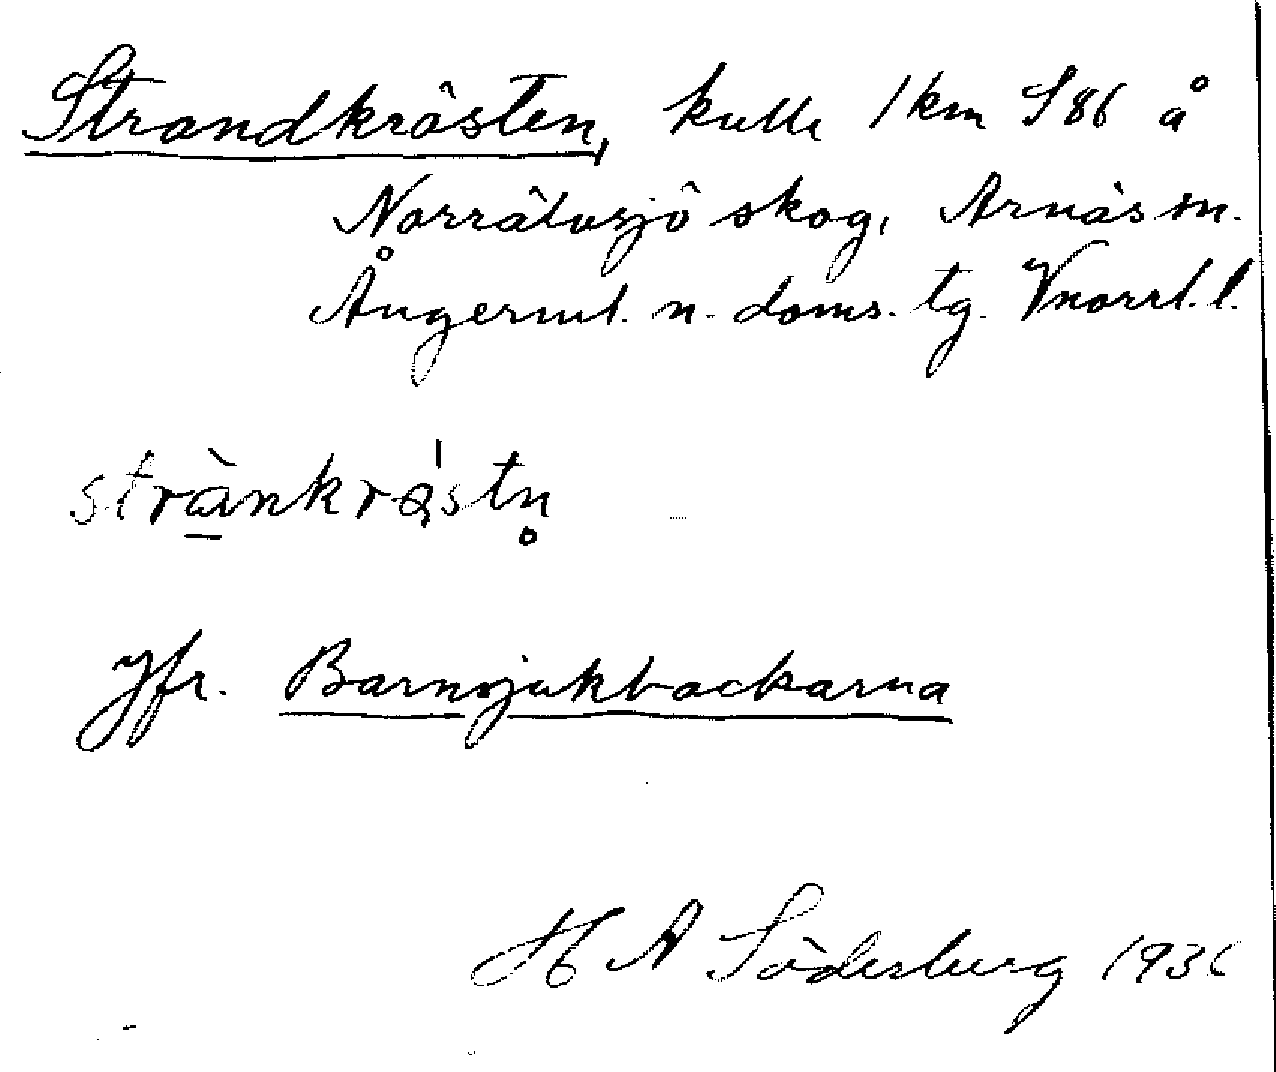 Strandkrösten, kulle 1 km S 86 å
Norrälvsjö skog, Arnäs sn.
Ångerml. n. doms. tg. Vnorrl. l.
strànkråstn̥
Jfr. Barnsjukbackarna
H A Söderberg 1936